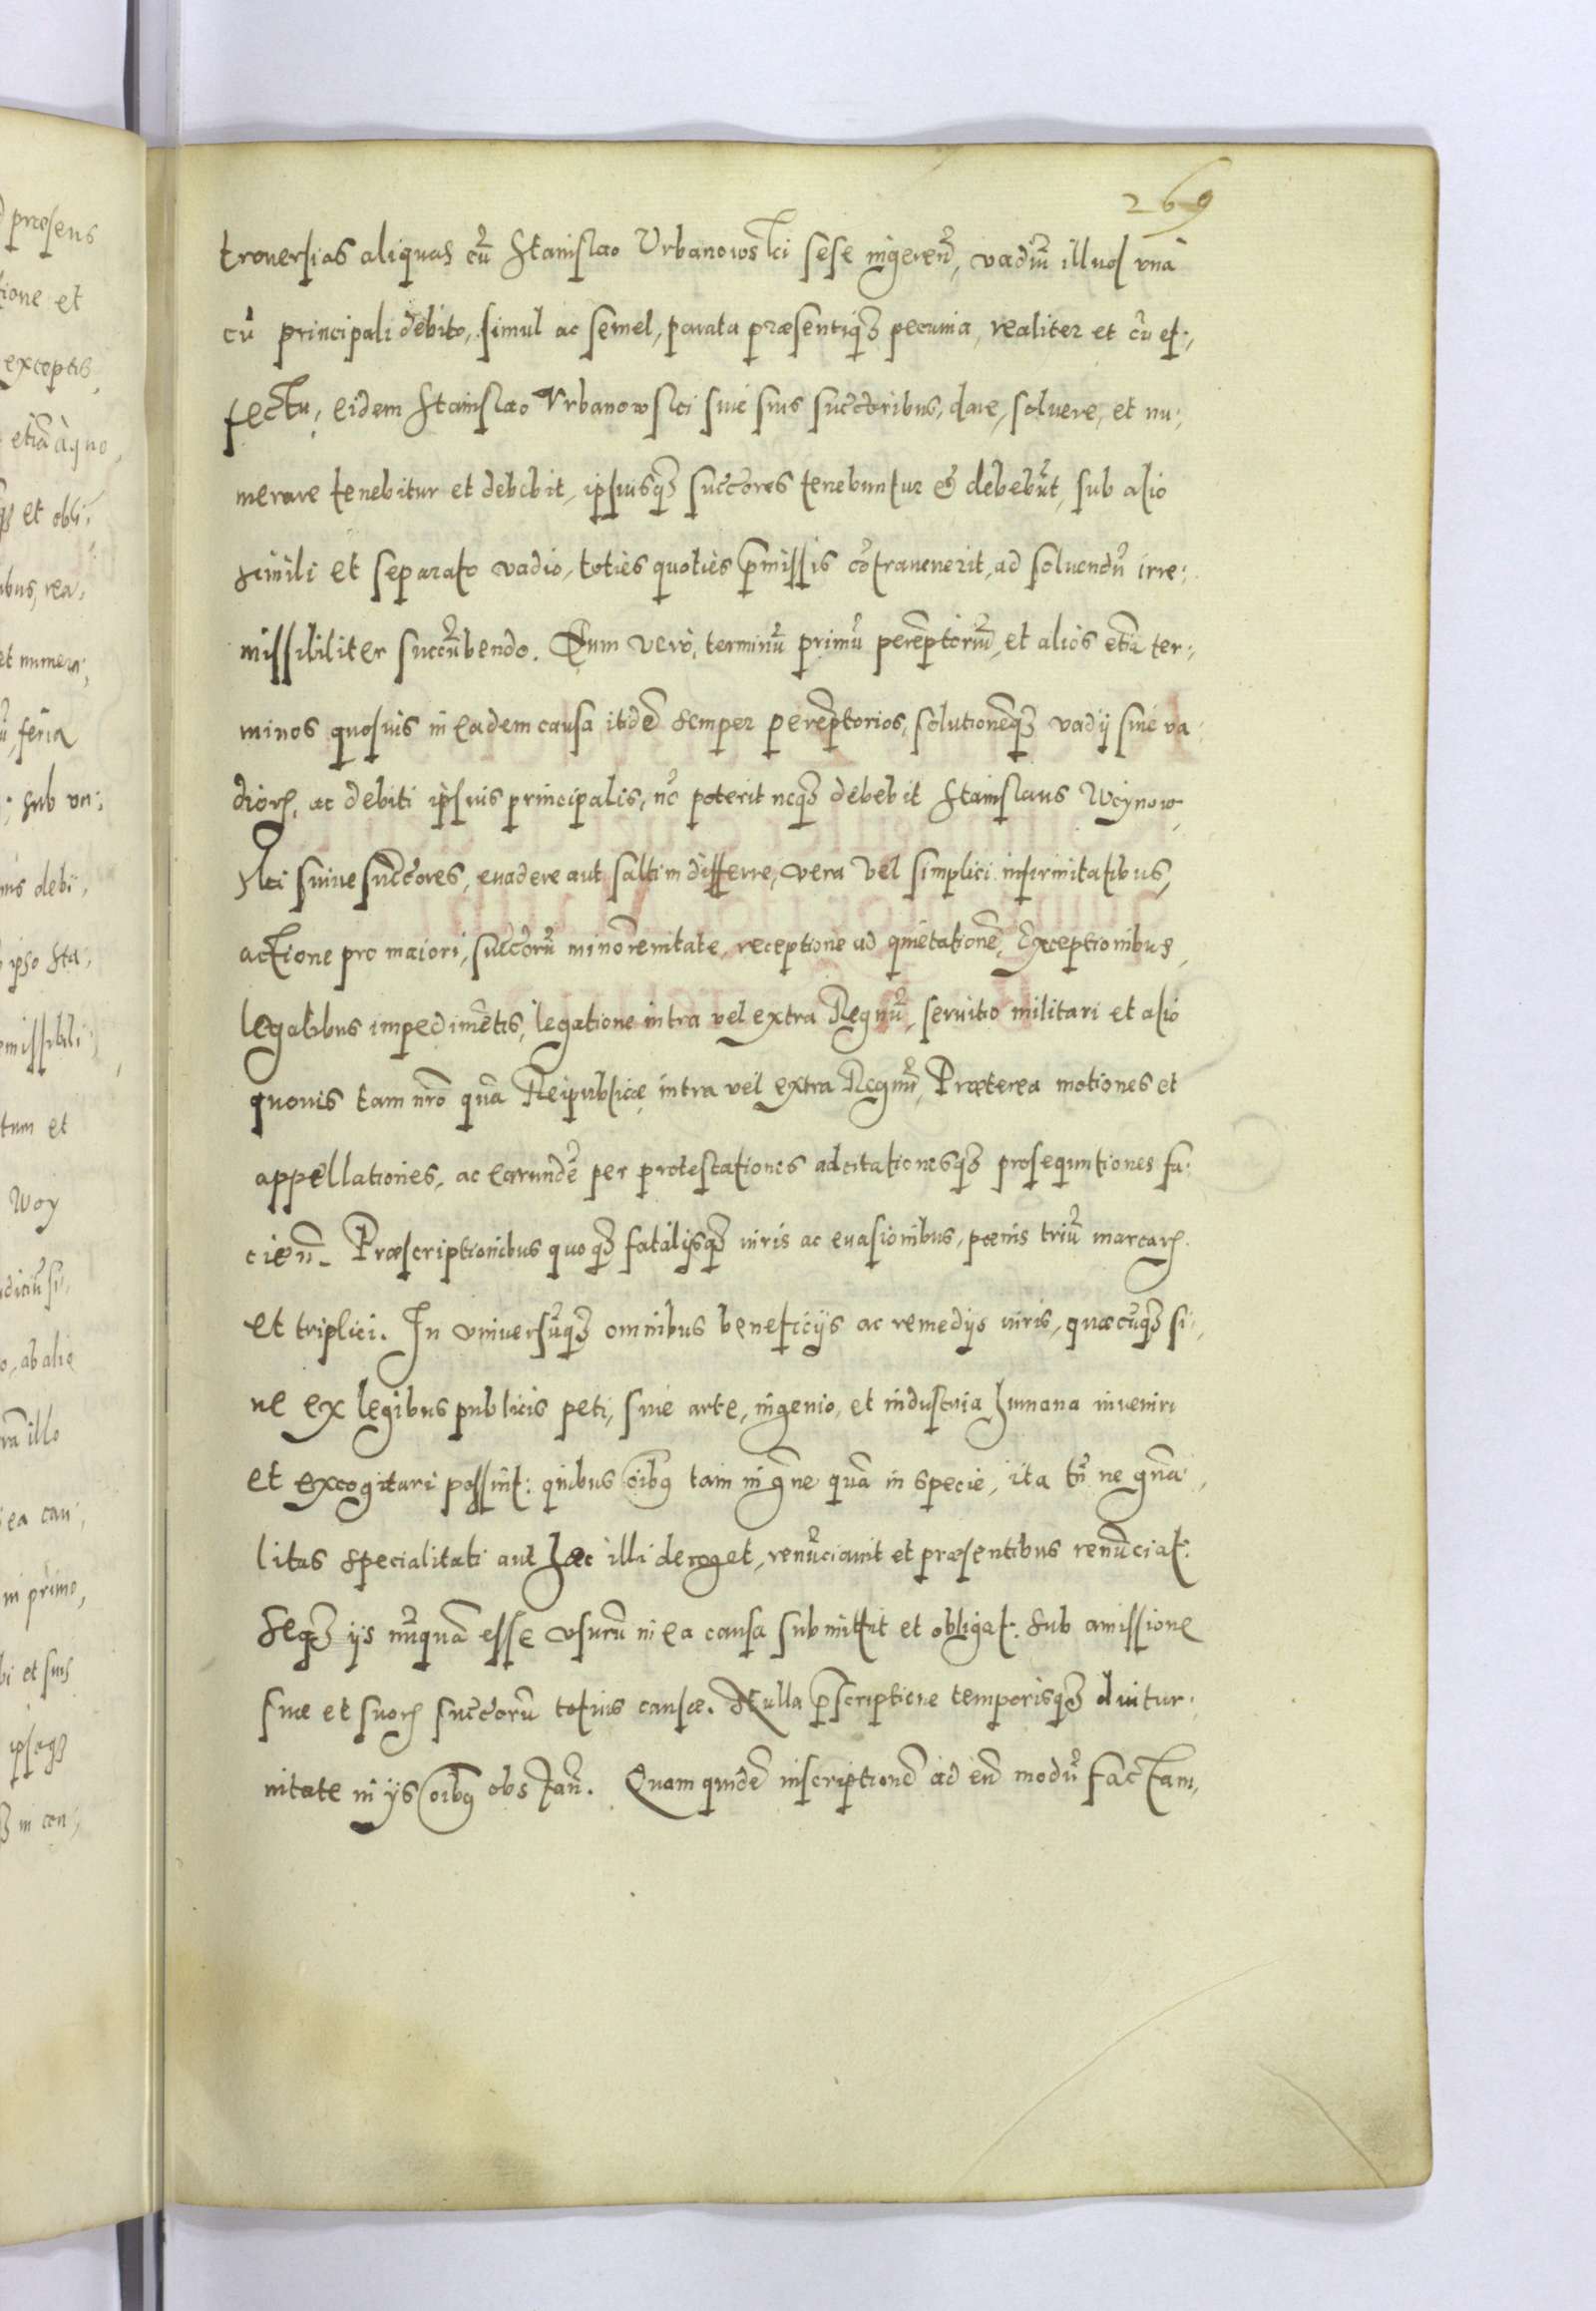 269
troversias aliquas cū Stanislao Urbanowski sese ingereñ, vadiū illud unà
cū principali debito, simul ac semel, parata præsentiq₃ pecunia, realiter et cū ef:,
fectu, eidem Stanislao Vrbanowski sive suis succōribus, dare, solvere, et nu:,
merare tenebitur et debebit, ipsiusq₃ succōres tenebuntur et debebūt, sub alio
simili et separato vadio, toties quoties p̄missis cōtravenerit, ad solvendū irre:,
missibiliter succūbendo. Quem verò, terminū primū perēptoriū, et alios etiā ter:,
minos quosvis in eadem causa itidē semper perēptorios, solutionēq₃ vadij sive va:
dioꝝ, ac debiti ipsius principalis, nō poterit neq₃ debebit Stanislaus Woynow,
ski suive succōres, evadere aut saltim differre, vera vel simplici infirmitatibus,
actione pro maiori, succōrū minorennitate, receptione ad quietationē, Exceptionibus,
legalibus impedimētis, legatione intra vel extra Regnū, servitio militari et alio
quovis tam nr̄o quā Reipublicæ intra vel extra Regnū, Præterea motiones et
appellationes, ac earundē per protestationes adcitationesq₃ prosequutiones fa:
cieñ. Præscriptionibus quoq₃ fatalijsq₃ iuris ac evasionibus, pœnis triū marcaꝝ.
et triplici. In universūq₃ omnibus beneficijs ac remedijs iuris, quæcūq₃ si:,
ve ex legibus publicis peti, sive arte, ingenio, et industria humana inveniri
et excogitari possint: quibus oībꝰ tam in gn̄e quā in specie, ita tn̄ ne gn̄a:,
litas specialitati aut hæc illi deroget, renūciavit et præsentibus renūciat:
Seq₃ ijs nūquā esse usurū in ea causa submittit et obligat. Sub amissione
sue et suoꝝ succōrū totius causæ. Nulla p̄scriptione temporisq₃ diutur:
nitate in ijs oībꝰ obstañ. Quam quidē inscriptionē ad eū modū factam,